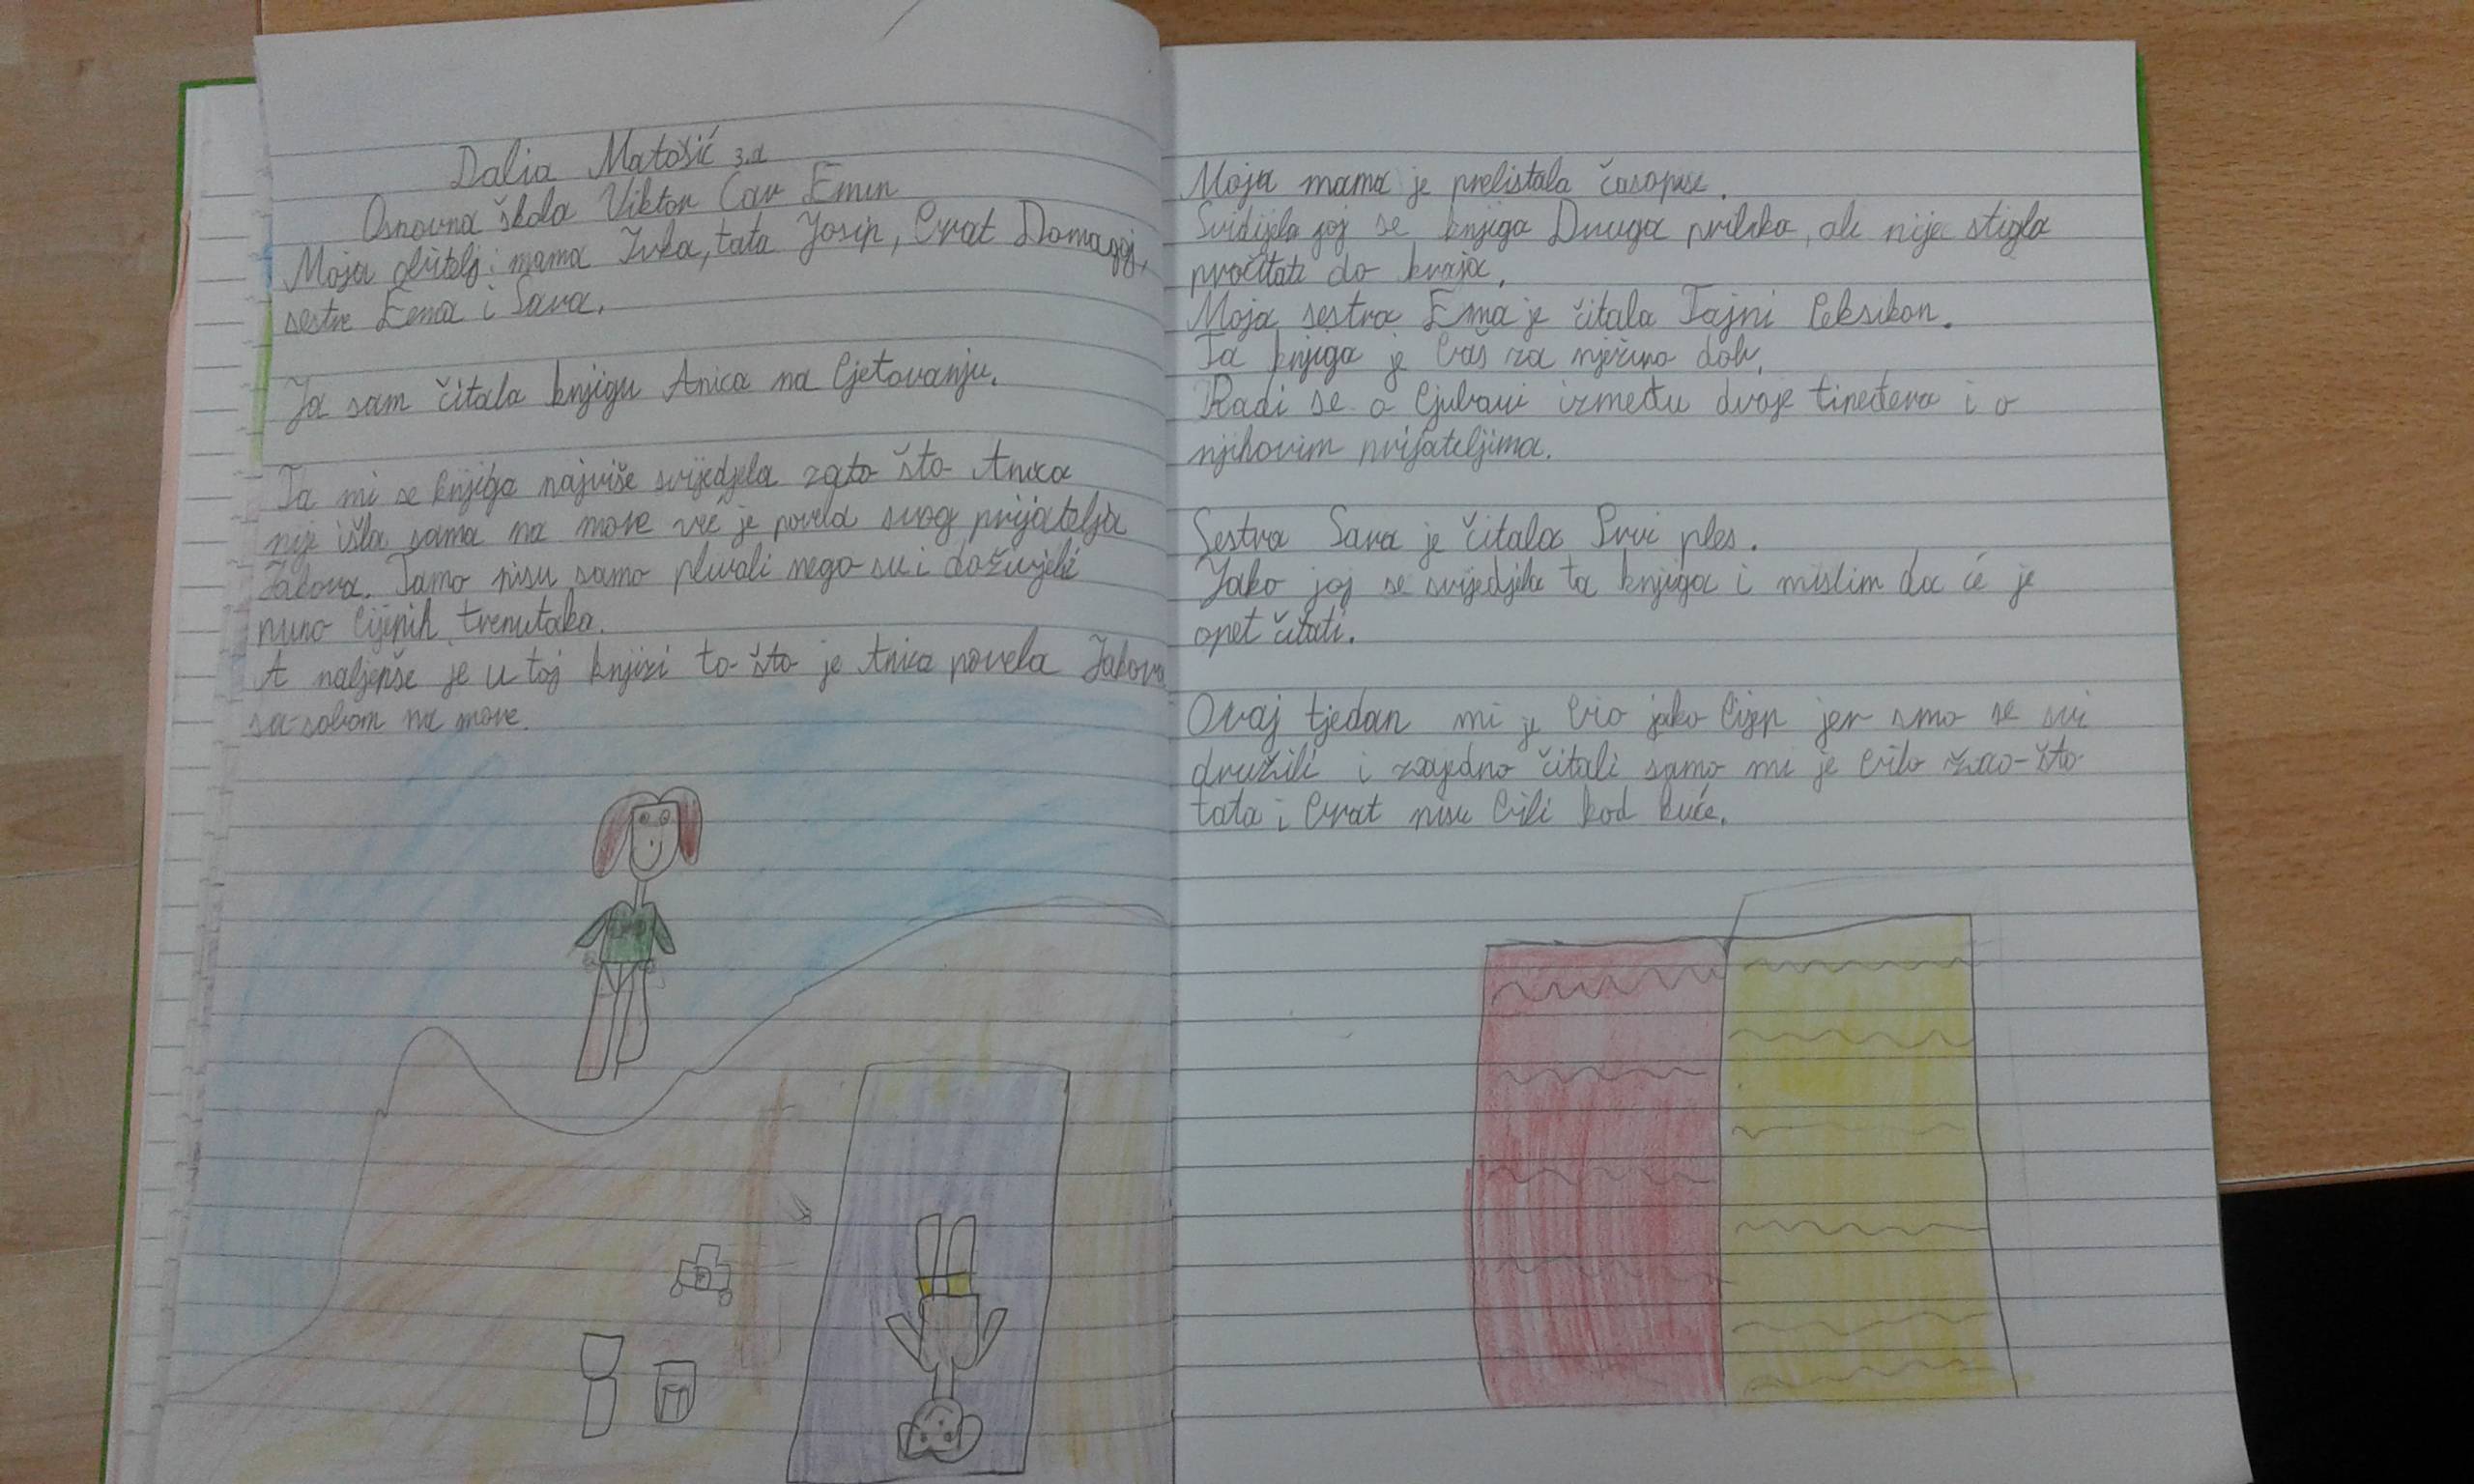 Dalia Matošić 3.a
Osnovna škola Viktor Car Emin
Moja obitelj: mama Ivka, tata Josip, brat Domagoj,
sestre Ema i Sara.
Ja sam čitala knjigu Anica na ljetovanju.
Ta mi se knjiga najviše svijedjela zato što Anica
nije išla sama na more već je povela svog prijatelja
Jakova. Tamo nisu samo plivali nego su i doživjeli
puno lijepih trenutaka.
A naljepše je u toj knjizi to što je Anica povela Jakova
sa sobom na more.
Moja mama je prelistala časopise.
Svidijela joj se knjiga Druga prilika, ali nije stigla
pročitati do kraja.
Moja sestra Ema je čitala Tajni leksikon.
Ta knjiga je baš za nježinu dob.
Radi se o ljubavi između dvoje tineđera i o
njihovim prijateljima.
Sestra Sara je čitala Prvi ples.
Jako joj se svijedjela ta knjiga i mislim da će je
opet čitati.
Ovaj tjedan mi je bio jako lijep jer smo se svi
družili i zajedno čitali samo mi je bilo žao što
tata i brat nisu bili kod kuće.